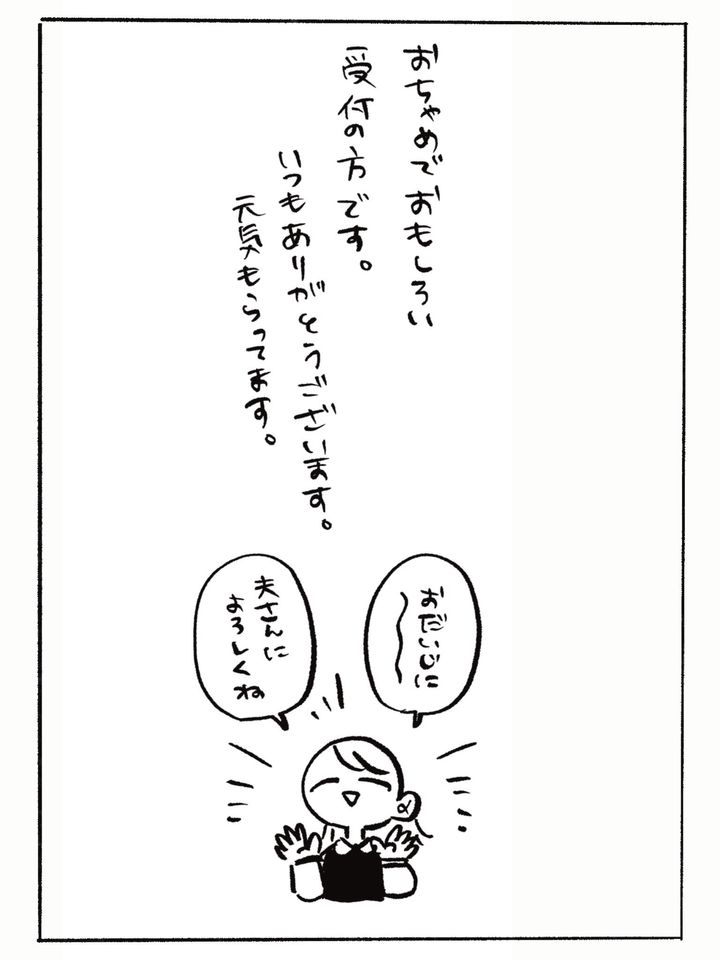 おちゃめでおもしろい
受付の方です。
いつもありがとうございます。
元気もらってます。
おだいじに
夫さんに
よろしくね